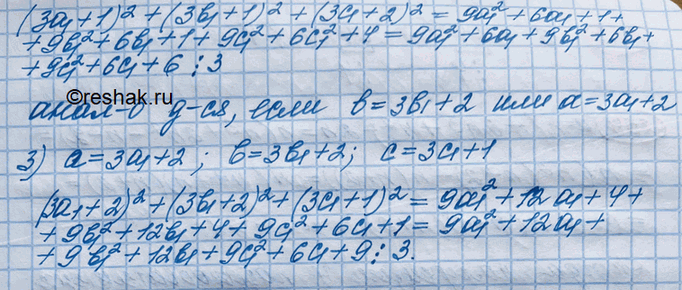 (3a₁+1)² + (3b₁+1)² + (3c₁+2)² = 9a₁² + 6a₁ + 1 +
+ 9b₁² + 6b₁ + 1 + 9c₁² + 6c₁² + 4 = 9a₁² + 6a₁ + 9b₁² + 6b₁ +
+ 9c₁² + 6c₁ + 6 ⋮ 3
©reshak.ru
анал-о д-ся, если b = 3b₁+2 или a = 3a₁+2
3) a = 3a₁+2 ; b = 3b₁+2; c = 3c₁+1
(3a₁+2)² + (3b₁+2)² + (3c₁+1)² = 9a₁² + 12a₁ + 4 +
+ 9b₁² + 12b₁ + 4 + 9c₁² + 6c₁ + 1 = 9a₁² + 12a₁ +
+ 9b₁² + 12b₁ + 9c₁² + 6c₁ + 9 ⋮ 3.